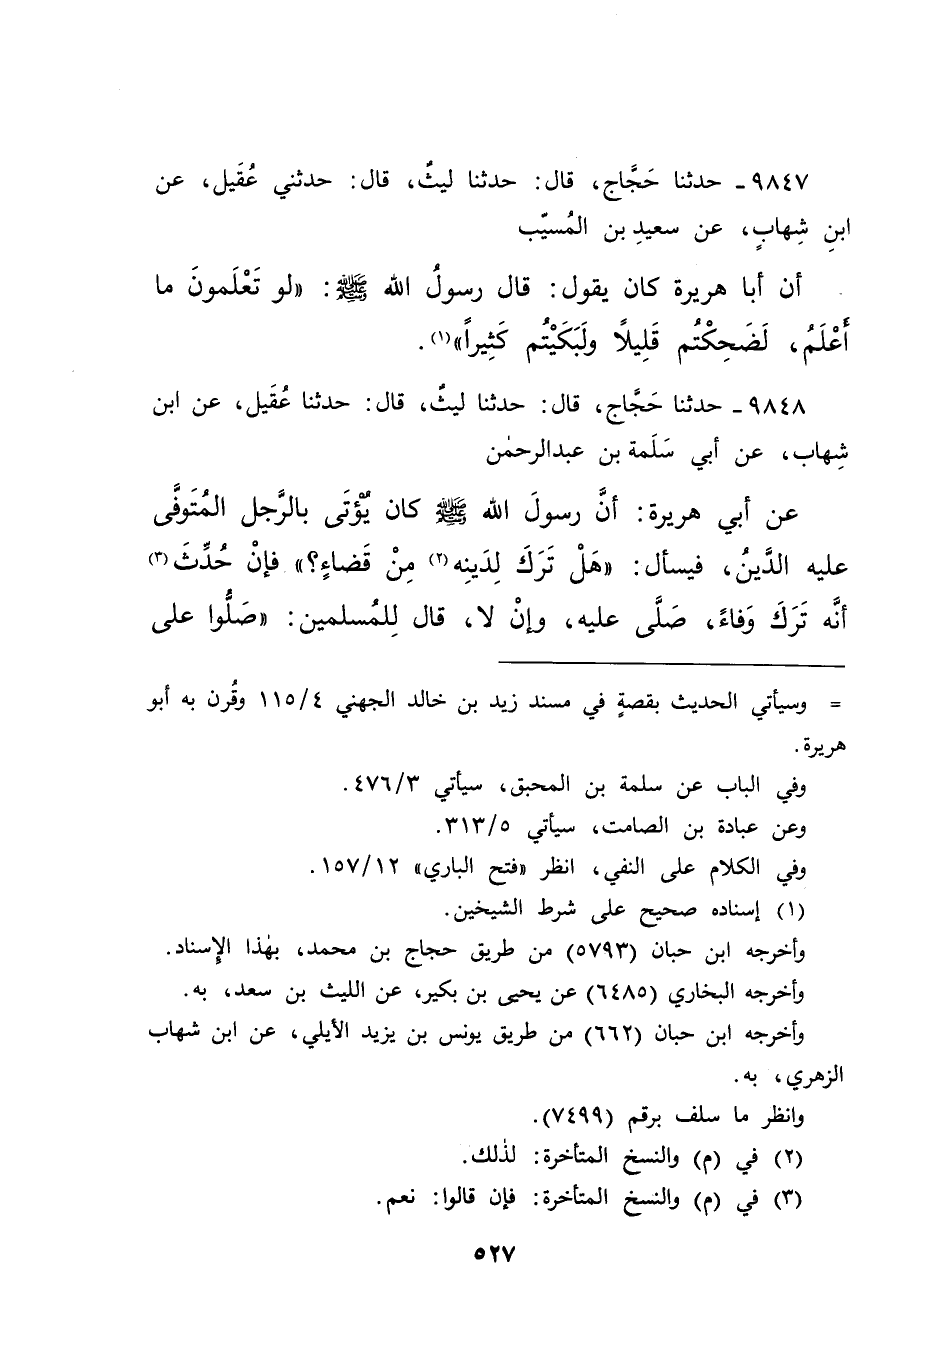 ٩٨٤٧ - حدثنا حَجَّاج، قال: حدثنا ليثٌ، قال: حدثني عُقَيل، عن
ابنِ شِهابٍ، عن سعيدِ بن المُسيّب
أن أبا هريرة كان يقول: قال رسولُ الله ﷺ: «لو تَعْلَمونَ ما
أَعْلَمُ، لَضَحِكْتُم قَلِيلًا ولَبَكَيْتُم كَثِيراً»(١).
٩٨٤٨ - حدثنا حَجَّاج، قال: حدثنا ليثٌ، قال: حدثنا عُقَيل، عن ابن
شِهاب، عن أبي سَلَمة بن عبدالرحمٰن
عن أبي هريرة: أنَّ رسولَ الله ﷺ كان يُؤْتَى بالرَّجل المُتَوفَّى
عليه الدَّينُ، فيسأل: «هَلْ تَرَكَ لِدَينِه(٢) مِنْ قَضاءٍ؟» فإنْ حُدِّثَ(٣)
أنَّه تَرَكَ وَفاءً، صَلَّى عليه، وإنْ لا، قال لِلمُسلمين: «صَلُّوا على
= وسيأتي الحديث بقصةٍ في مسند زيد بن خالد الجهني ٤/١١٥ وقُرن به أبو
هريرة.
وفي الباب عن سلمة بن المحبق، سيأتي ٣/٤٧٦.
وعن عبادة بن الصامت، سيأتي ٥/٣١٣.
وفي الكلام على النفي، انظر «فتح الباري» ١٢/١٥٧.
(١) إسناده صحيح على شرط الشيخين.
وأخرجه ابن حبان (٥٧٩٣) من طريق حجاج بن محمد، بهٰذا الإِسناد.
وأخرجه البخاري (٦٤٨٥) عن يحيى بن بكير، عن الليث بن سعد، به.
وأخرجه ابن حبان (٦٦٢) من طريق يونس بن يزيد الأيلي، عن ابن شهاب
الزهري، به.
وانظر ما سلف برقم (٧٤٩٩).
(٢) في (م) والنسخ المتأخرة: لذٰلك.
(٣) في (م) والنسخ المتأخرة: فإن قالوا: نعم.
٥٢٧